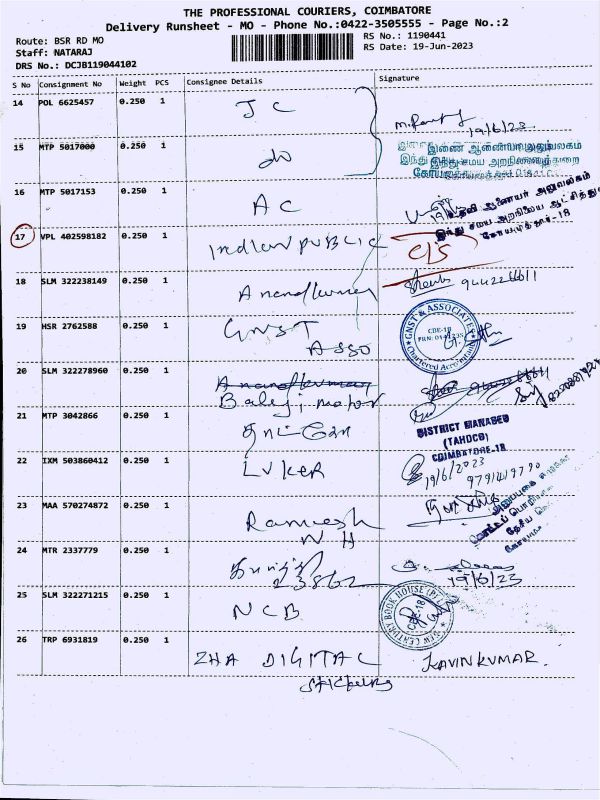 THE PROFESSIONAL COURIERS, COIMBATORE
Delivery Runsheet - MO - Phone No.:0422-3505555 - Page No.:2
Route: BSR RD MO
Staff: NATARAJ
DRS No.: DCJB119044102
RS No.: 1190441
RS Date: 19-Jun-2023
S No Consignment No Weight PCS Consignee Details Signature
14 POL 6625457 0.250 1 J C
19/6/23
15 MTP 5017000 0.250 1 do
இணை ஆணையர் அலுவலகம்
இந்து சமய அறநிலையத்துறை
16 MTP 5017153 0.250 1 A C
உதவி ஆணையர் அலுவலகம்
இந்து சமய அறநிலைய ஆட்சித்துறை
கோயமுத்தூர்-18
17 VPL 402598182 0.250 1 Indian PUBLIC C/S
18 SLM 322238149 0.250 1 Anandkumar
19 HSR 2762588 0.250 1 GNST
ASSO
GNST & ASSOCIATES
CBE-18
Chartered Accountants
20 SLM 322278960 0.250 1 Anandkumar
Balaji motor
21 MTP 3042866 0.250 1
DISTRICT MANAGER
(TAHDCO)
COIMBATORE-18
22 IXM 503860412 0.250 1 LVKER
19/6/2023
9791419790
23 MAA 570274872 0.250 1 Ramesh
N H
24 MTR 2337779 0.250 1
23862
19/6/23
25 SLM 322271215 0.250 1 NCB
NEW CENTURY BOOK HOUSE (P) LTD
CBE-18
26 TRP 6931819 0.250 1 ZHA DIGITAL
Stickers
KAVINKUMAR.